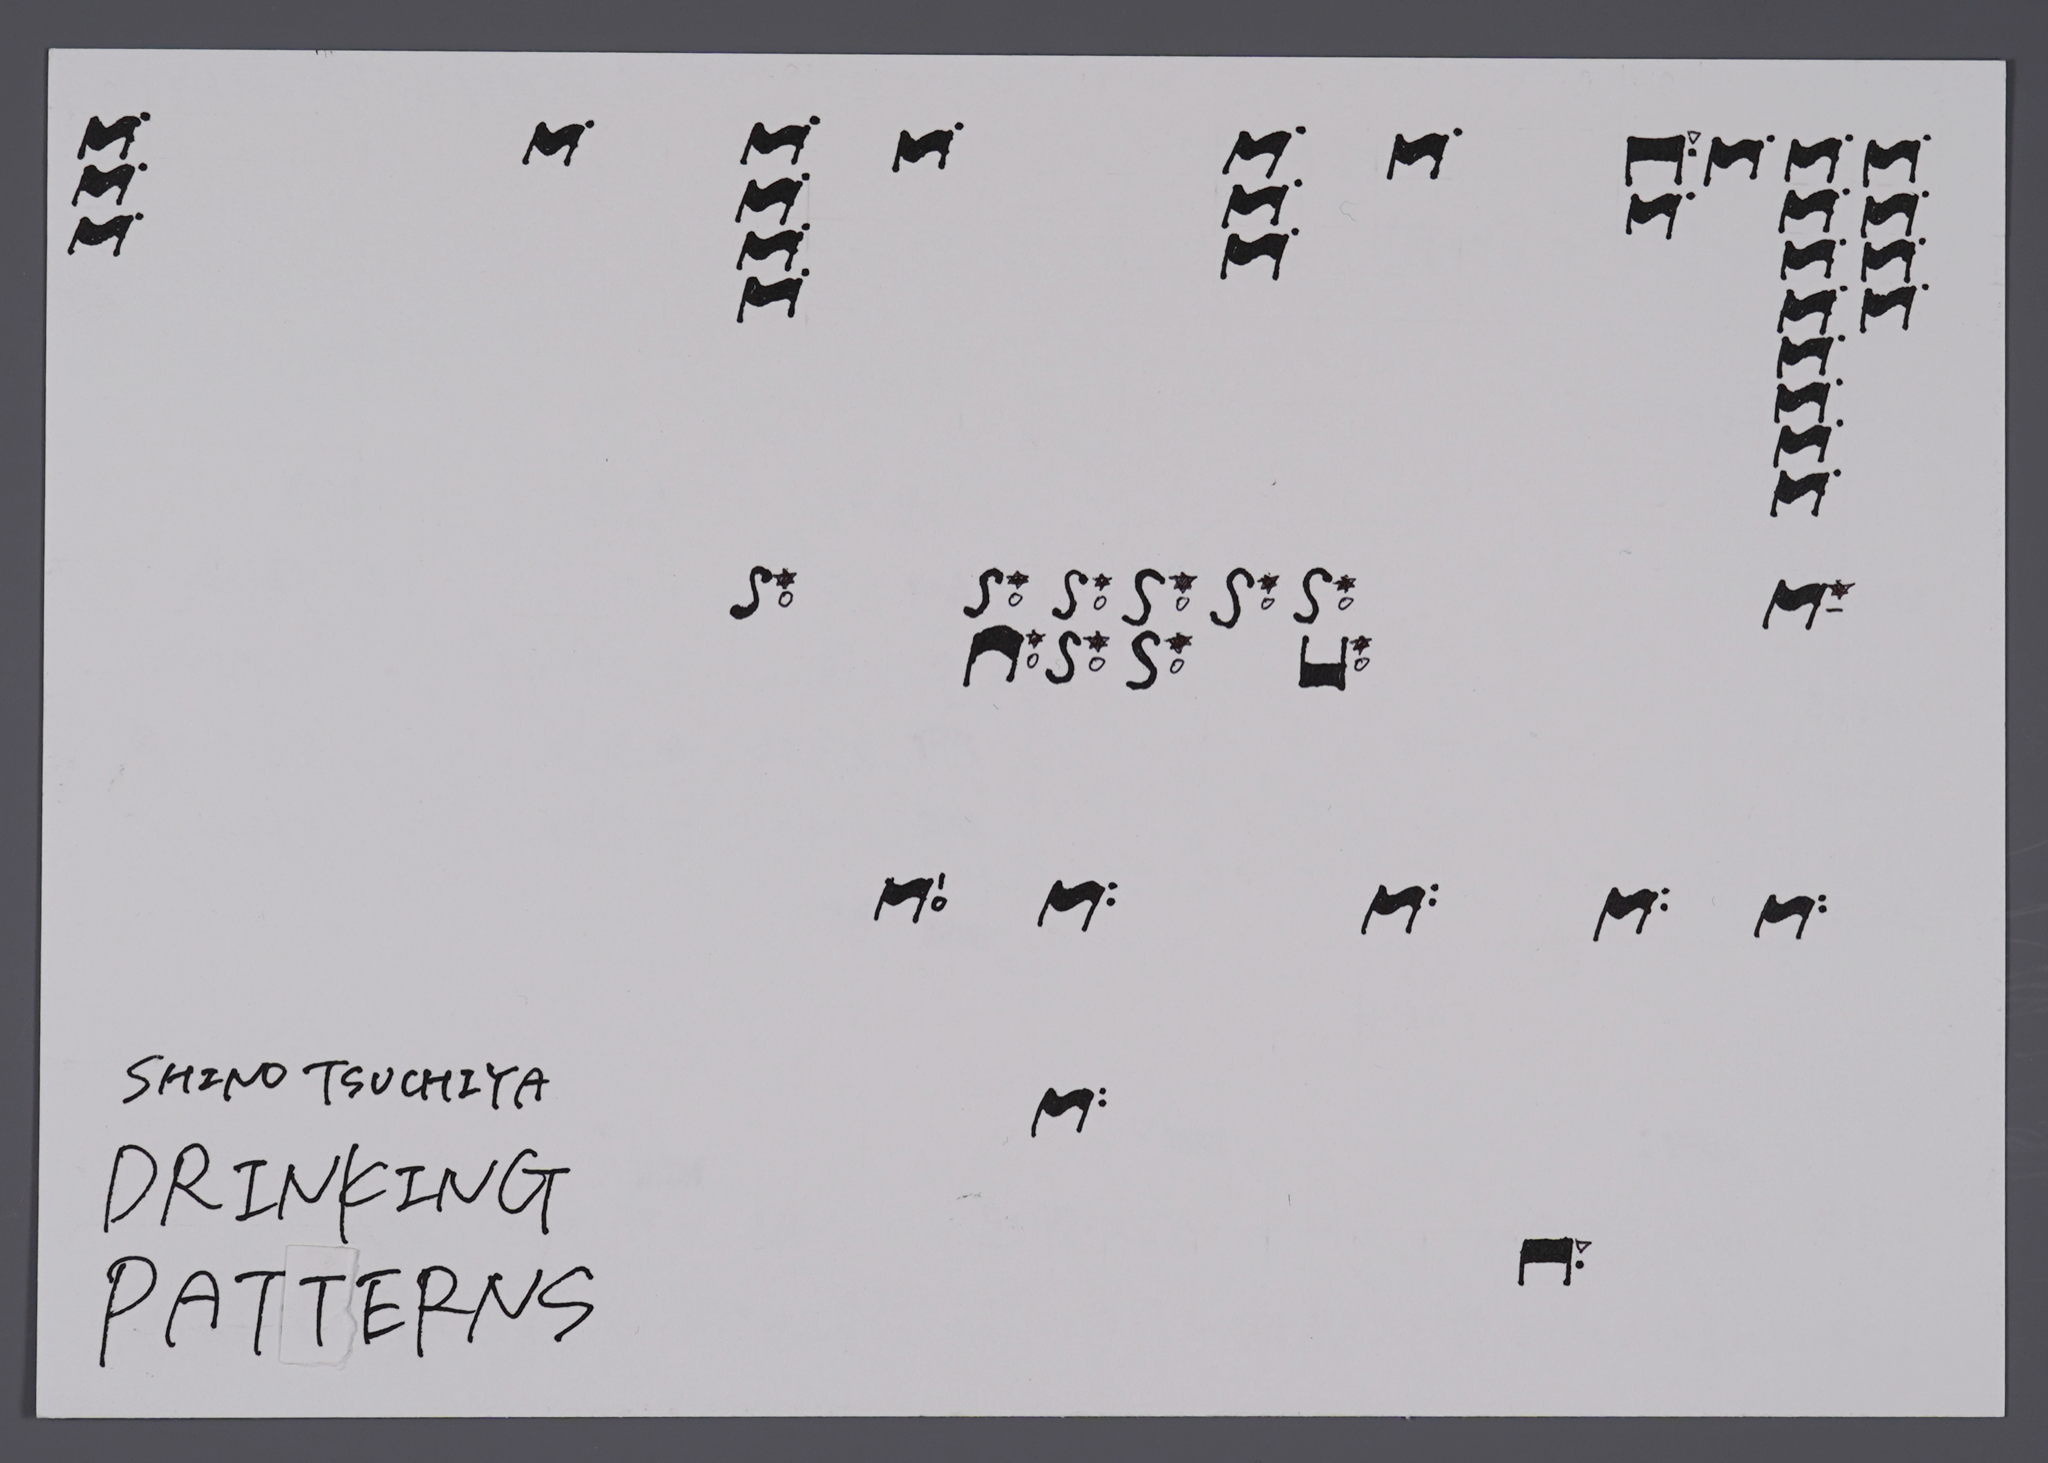 SHINO TSUCHIYA
DRINKING
PATTERNS